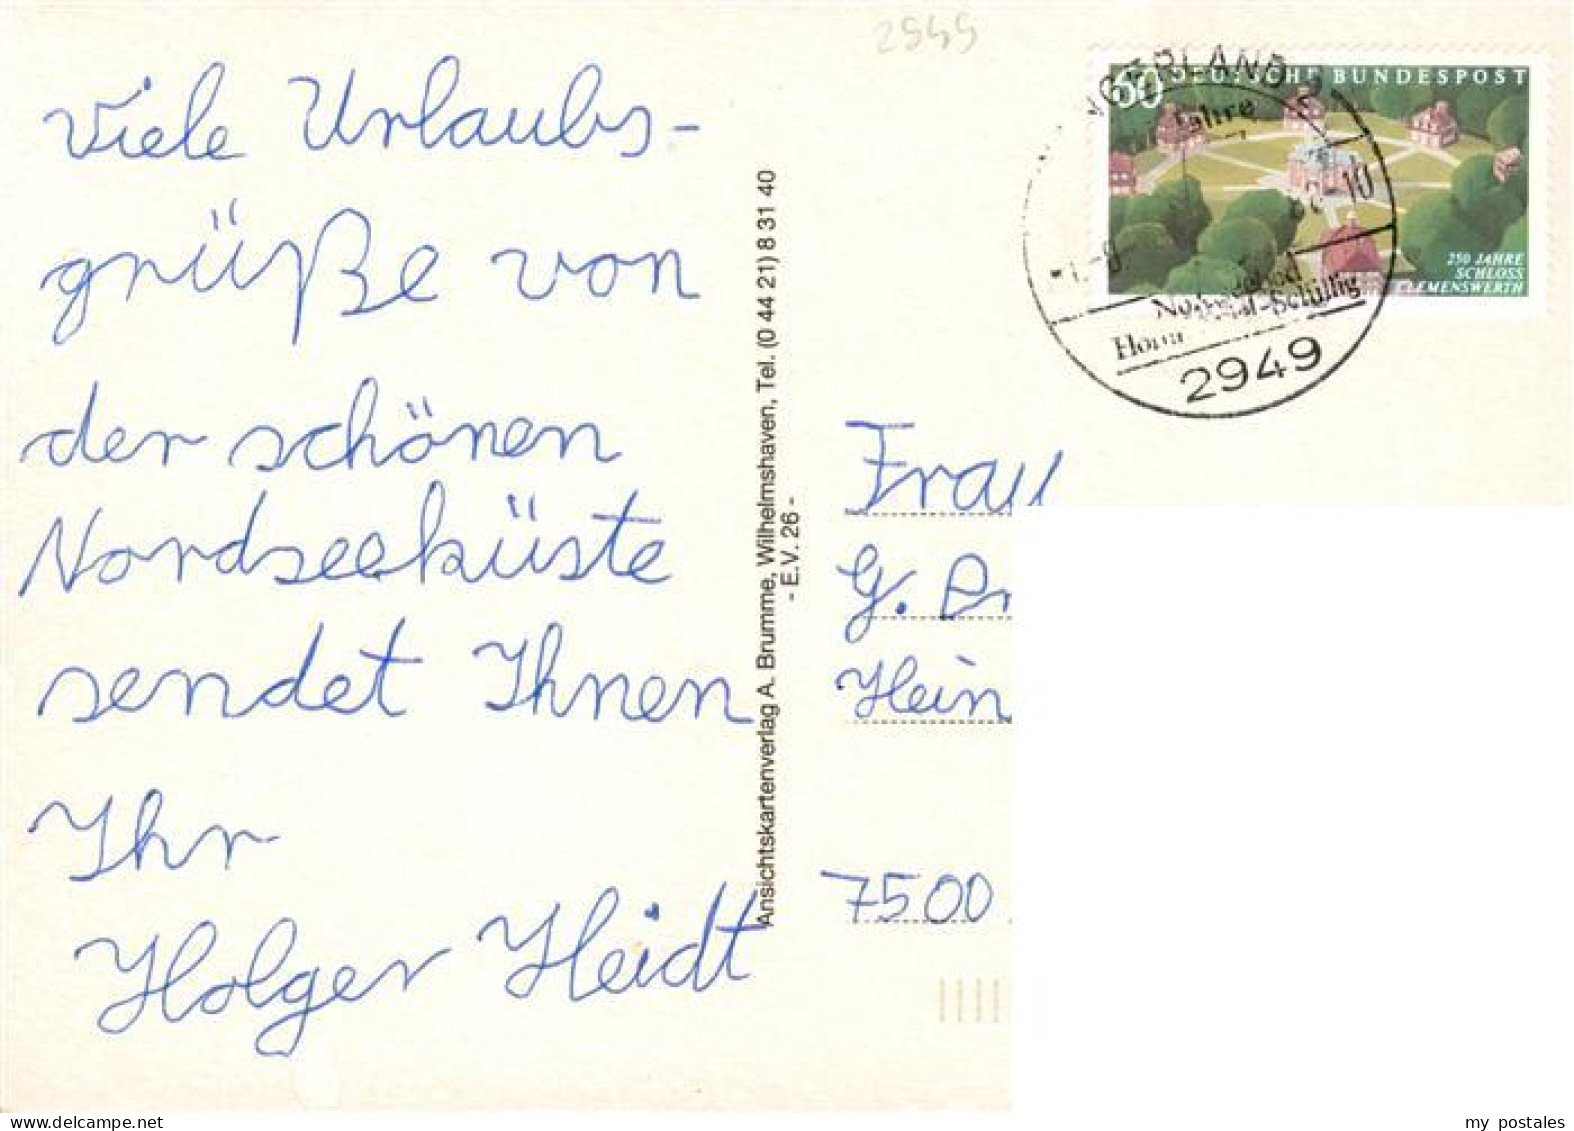 2949
Viele Urlaubs-
grüße von
der schönen
Nordseeküste
sendet Ihnen
Ihr
Holger Heidt
Ansichtskartenverlag A. Brumme, Wilhelmshaven, Tel. (0 44 21) 8 31 40
- E.V. 26 -
60 DEUTSCHE BUNDESPOST
250 JAHRE
SCHLOSS
CLEMENSWERTH
Jahre
-10
2949
Frau
G.
Hein
7500
my postales